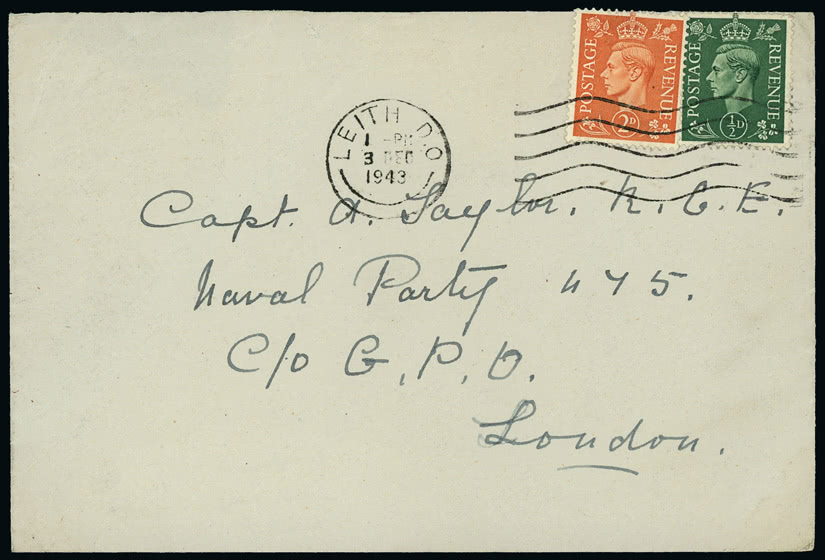 POSTAGE REVENUE
2D
POSTAGE REVENUE
½D
LEITH D.O
1 -PM
3 DEC
1943
Capt. A. Taylor. R.C.E.
Naval Party 475.
C/o G.P.O.
London.